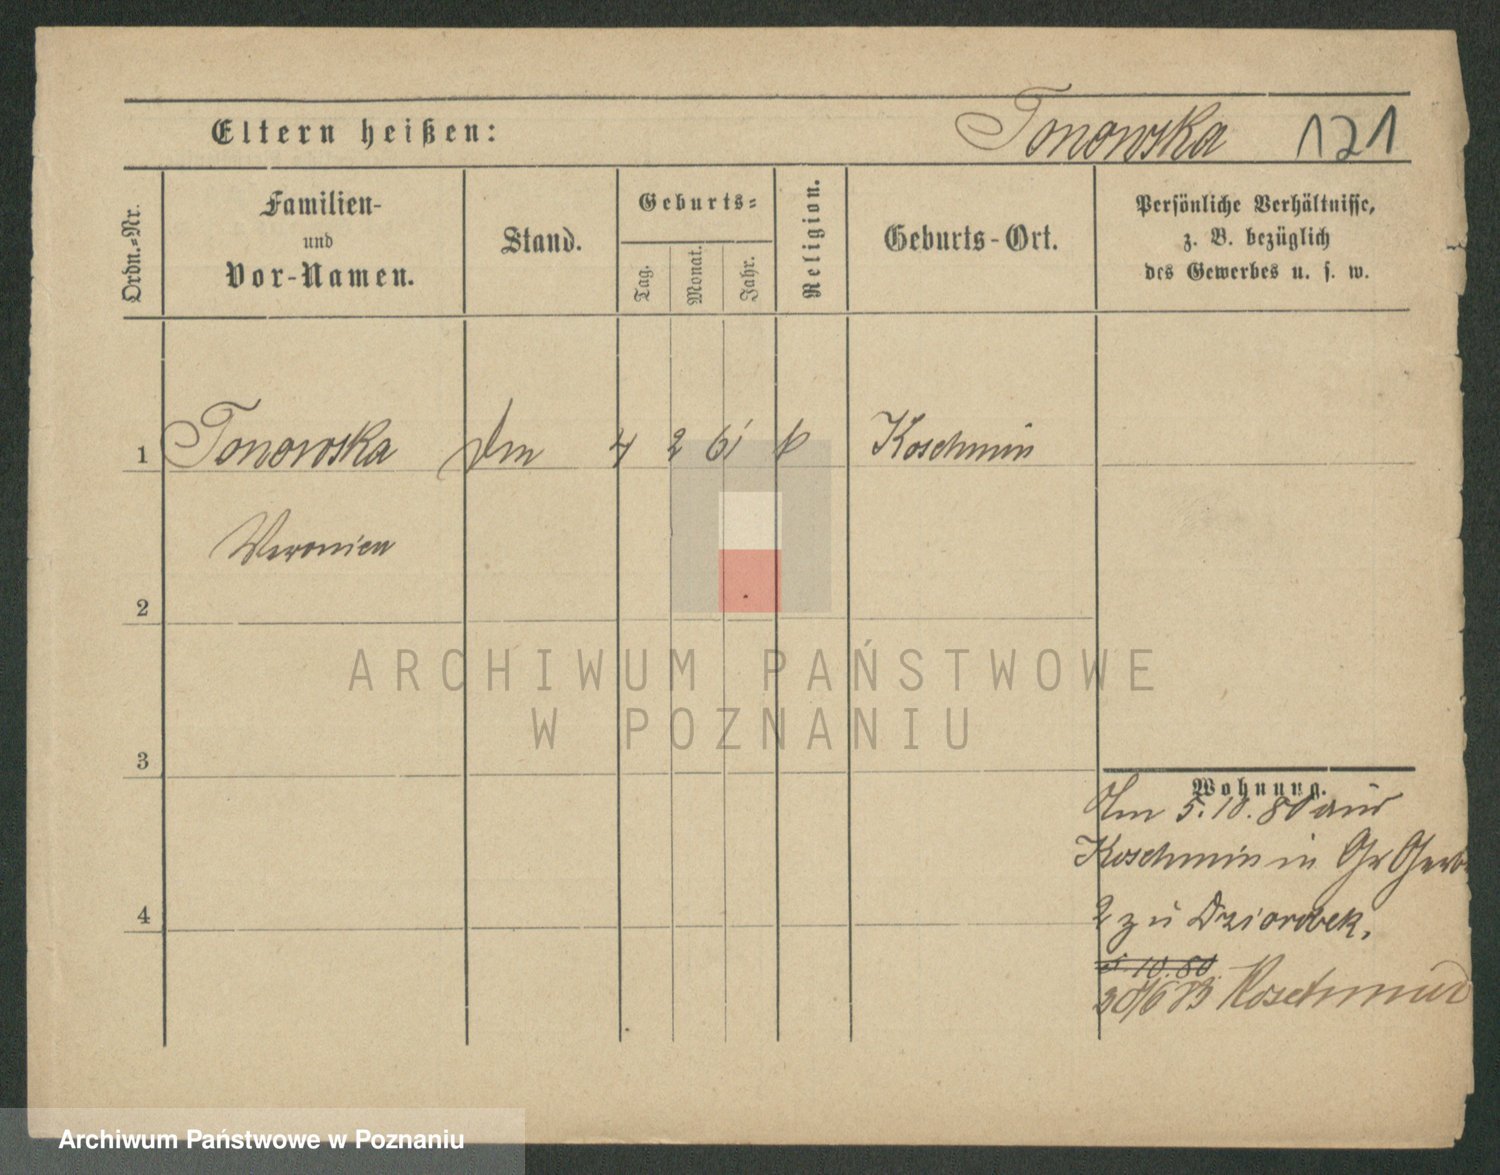 Eltern heißen:
Tonowska 121
Ordn.-Nr.
Familien-
und
Vor-Namen.
Stand.
Geburts-
Tag.
Monat.
Jahr.
Religion.
Geburts-Ort.
Persönliche Verhältnisse,
z. B. bezüglich
des Gewerbes u. s. w.
1 Tonowska 4 2 61 Koschmin
Veronica
2
ARCHIWUM PAŃSTWOWE
W POZNANIU
3
Wohnung.
5.10.80 aus
Koschmin in Gr Gerb
2 zu Dziorobek.
5 10.80
30/6 83 Koschmin
4
Archiwum Państwowe w Poznaniu